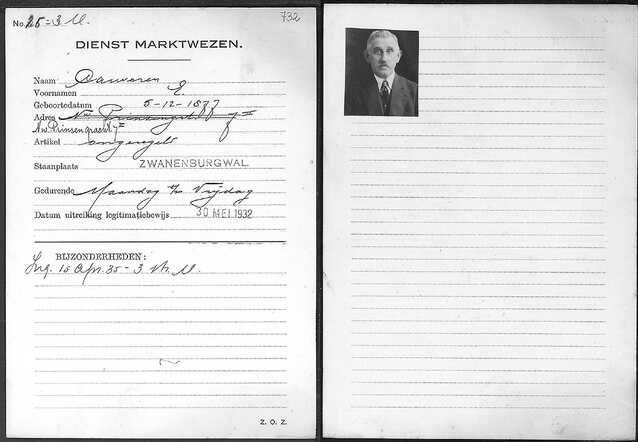 No. 25-3 M. 732
DIENST MARKTWEZEN.
Naam Dauveren
Voornamen E.
Geboortedatum 5-12-1877
Adres Nw Prinsengr 7
Nw. Prinsengracht 7
Artikel ongeregeld
Staanplaats ZWANENBURGWAL
Gedurende Maandag t/m Vrijdag
Datum uitreiking legitimatiebewijs 30 MEI 1932
BIJZONDERHEDEN:
Ing. 15 Apr. 35 - 3 M.
Z. O. Z.